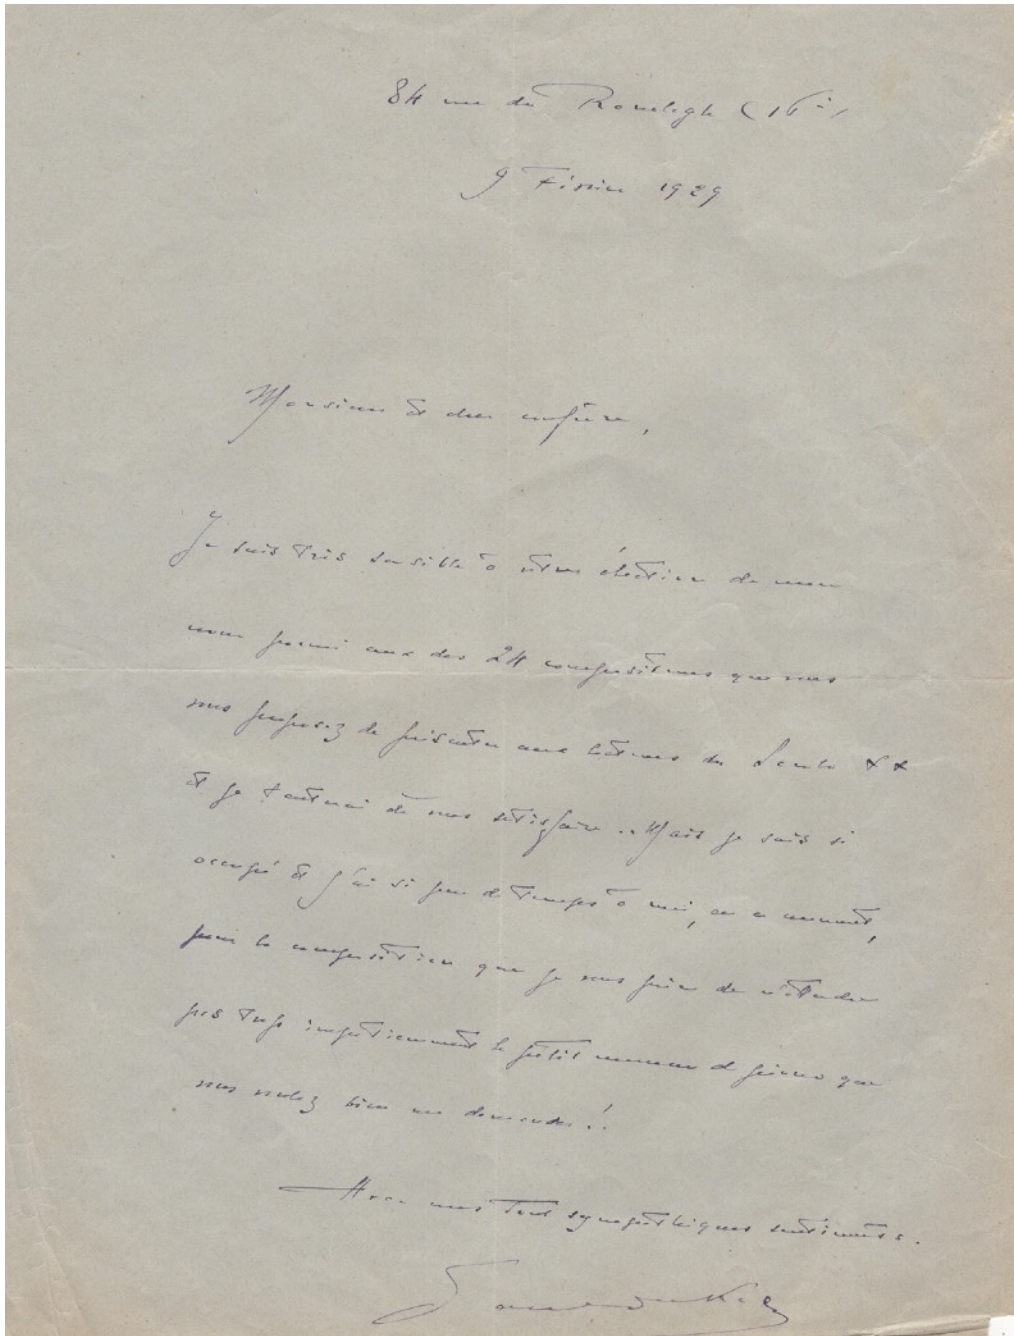 84 rue du Ranelagh (16è)
9 Février 1929
Monsieur et cher confrère,
Je suis très sensible à votre élection de mon
nom parmi ceux des 24 compositeurs que vous
vous proposez de présenter aux lecteurs du
et je tenterai de vous satisfaire .. Mais je suis si
occupé et j'ai si peu de temps à moi, en ce moment,
pour la composition que je vous prie de n'attendre
pas trop impatiemment le petit morceau de piano que
vous voulez bien me demander !.
Avec mes tout sympathiques sentiments.